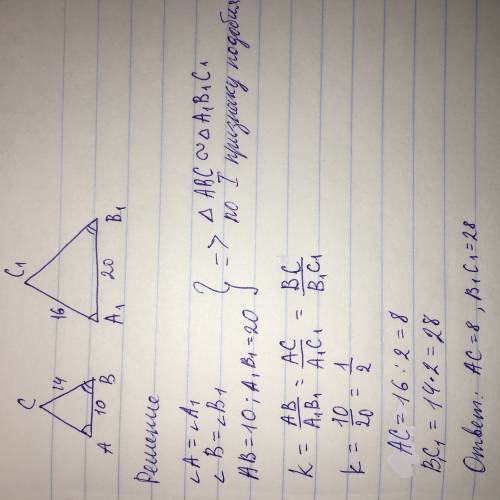 C
14
A 10 B
C₁
16
A₁ 20 B₁
Решение
∠A=∠A₁
∠B=∠B₁
AB=10; A₁B₁=20
} => △ABC ~ △A₁B₁C₁
по I признаку подобия
k = AB/A₁B₁ = AC/A₁C₁ = BC/B₁C₁
k = 10/20 = 1/2
AC=16:2=8
B₁C₁=14·2=28
Ответ: AC=8, B₁C₁=28